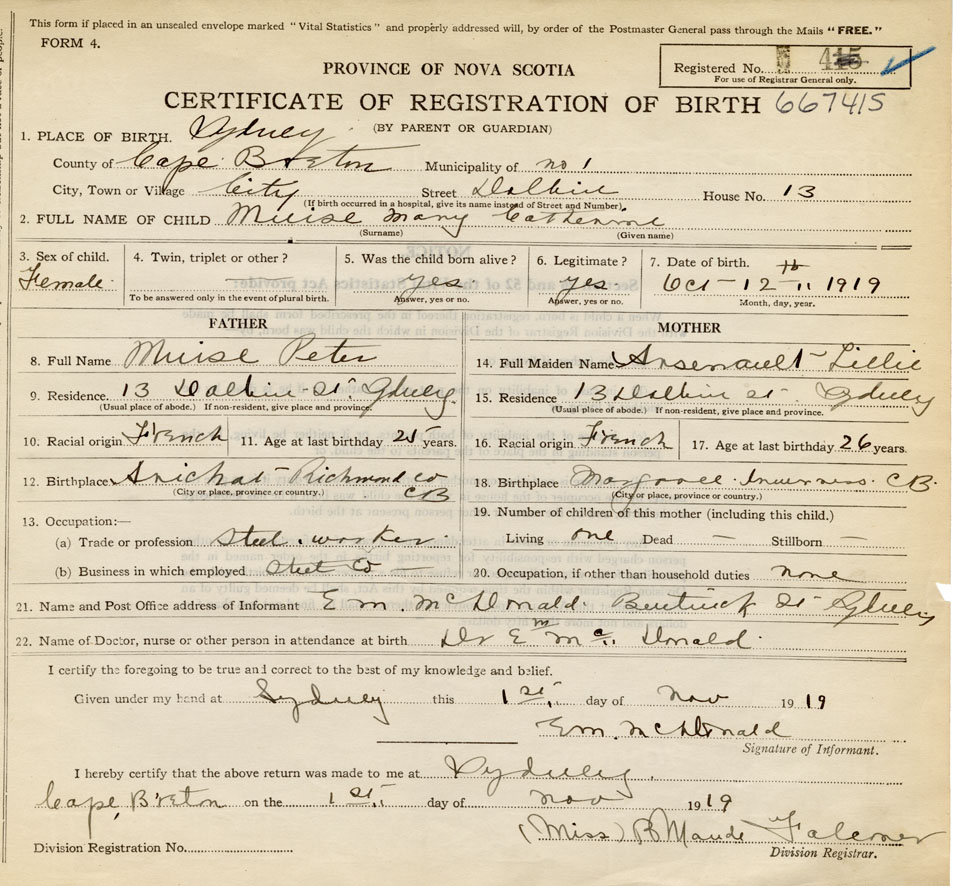 This form if placed in an unsealed envelope marked "Vital Statistics" and properly addressed will, by order of the Postmaster General pass through the Mails "FREE."
FORM 4.
Registered No. 415
For use of Registrar General only.
PROVINCE OF NOVA SCOTIA
CERTIFICATE OF REGISTRATION OF BIRTH 667415
(BY PARENT OR GUARDIAN)
1. PLACE OF BIRTH. Sydney
County of Cape Breton Municipality of no 1
City, Town or Village City Street Dolbin House No. 13
(If birth occurred in a hospital, give its name instead of Street and Number)
2. FULL NAME OF CHILD Muise Mary Catherine
(Surname) (Given name)
3. Sex of child. 4. Twin, triplet or other? 5. Was the child born alive? 6. Legitimate? 7. Date of birth.
Female yes yes Oct - 12th 1919
To be answered only in the event of plural birth. Answer, yes or no. Answer, yes or no. Month, day, year.
FATHER MOTHER
8. Full Name Muise Peter 14. Full Maiden Name Arsenault - Lillie
9. Residence. 13 Dolbin St. Sydney. 15. Residence 13 Dolbin St. Sydney
(Usual place of abode.) If non-resident, give place and province. (Usual place of abode.) If non-resident, give place and province.
10. Racial origin French 11. Age at last birthday 25 years. 16. Racial origin French 17. Age at last birthday 26 years.
12. Birthplace Arichat - Richmond Co CB 18. Birthplace Margaree Inverness. C B.
(City or place, province or country.) (City or place, province or country.)
13. Occupation:— 19. Number of children of this mother (including this child.)
(a) Trade or profession Steel worker Living one Dead — Stillborn —
(b) Business in which employed Steel Co 20. Occupation, if other than household duties none
21. Name and Post Office address of Informant E m. McDonald. Bentinck St Sydney
22. Name of Doctor, nurse or other person in attendance at birth Dr E m Mc Donald
I certify the foregoing to be true and correct to the best of my knowledge and belief.
Given under my hand at Sydney this 1st day of Nov 1919
E m. McDonald
Signature of Informant.
I hereby certify that the above return was made to me at Sydney
Cape Breton on the 1st day of Nov 1919
(Miss) B Maude Falconer
Division Registration No. Division Registrar.